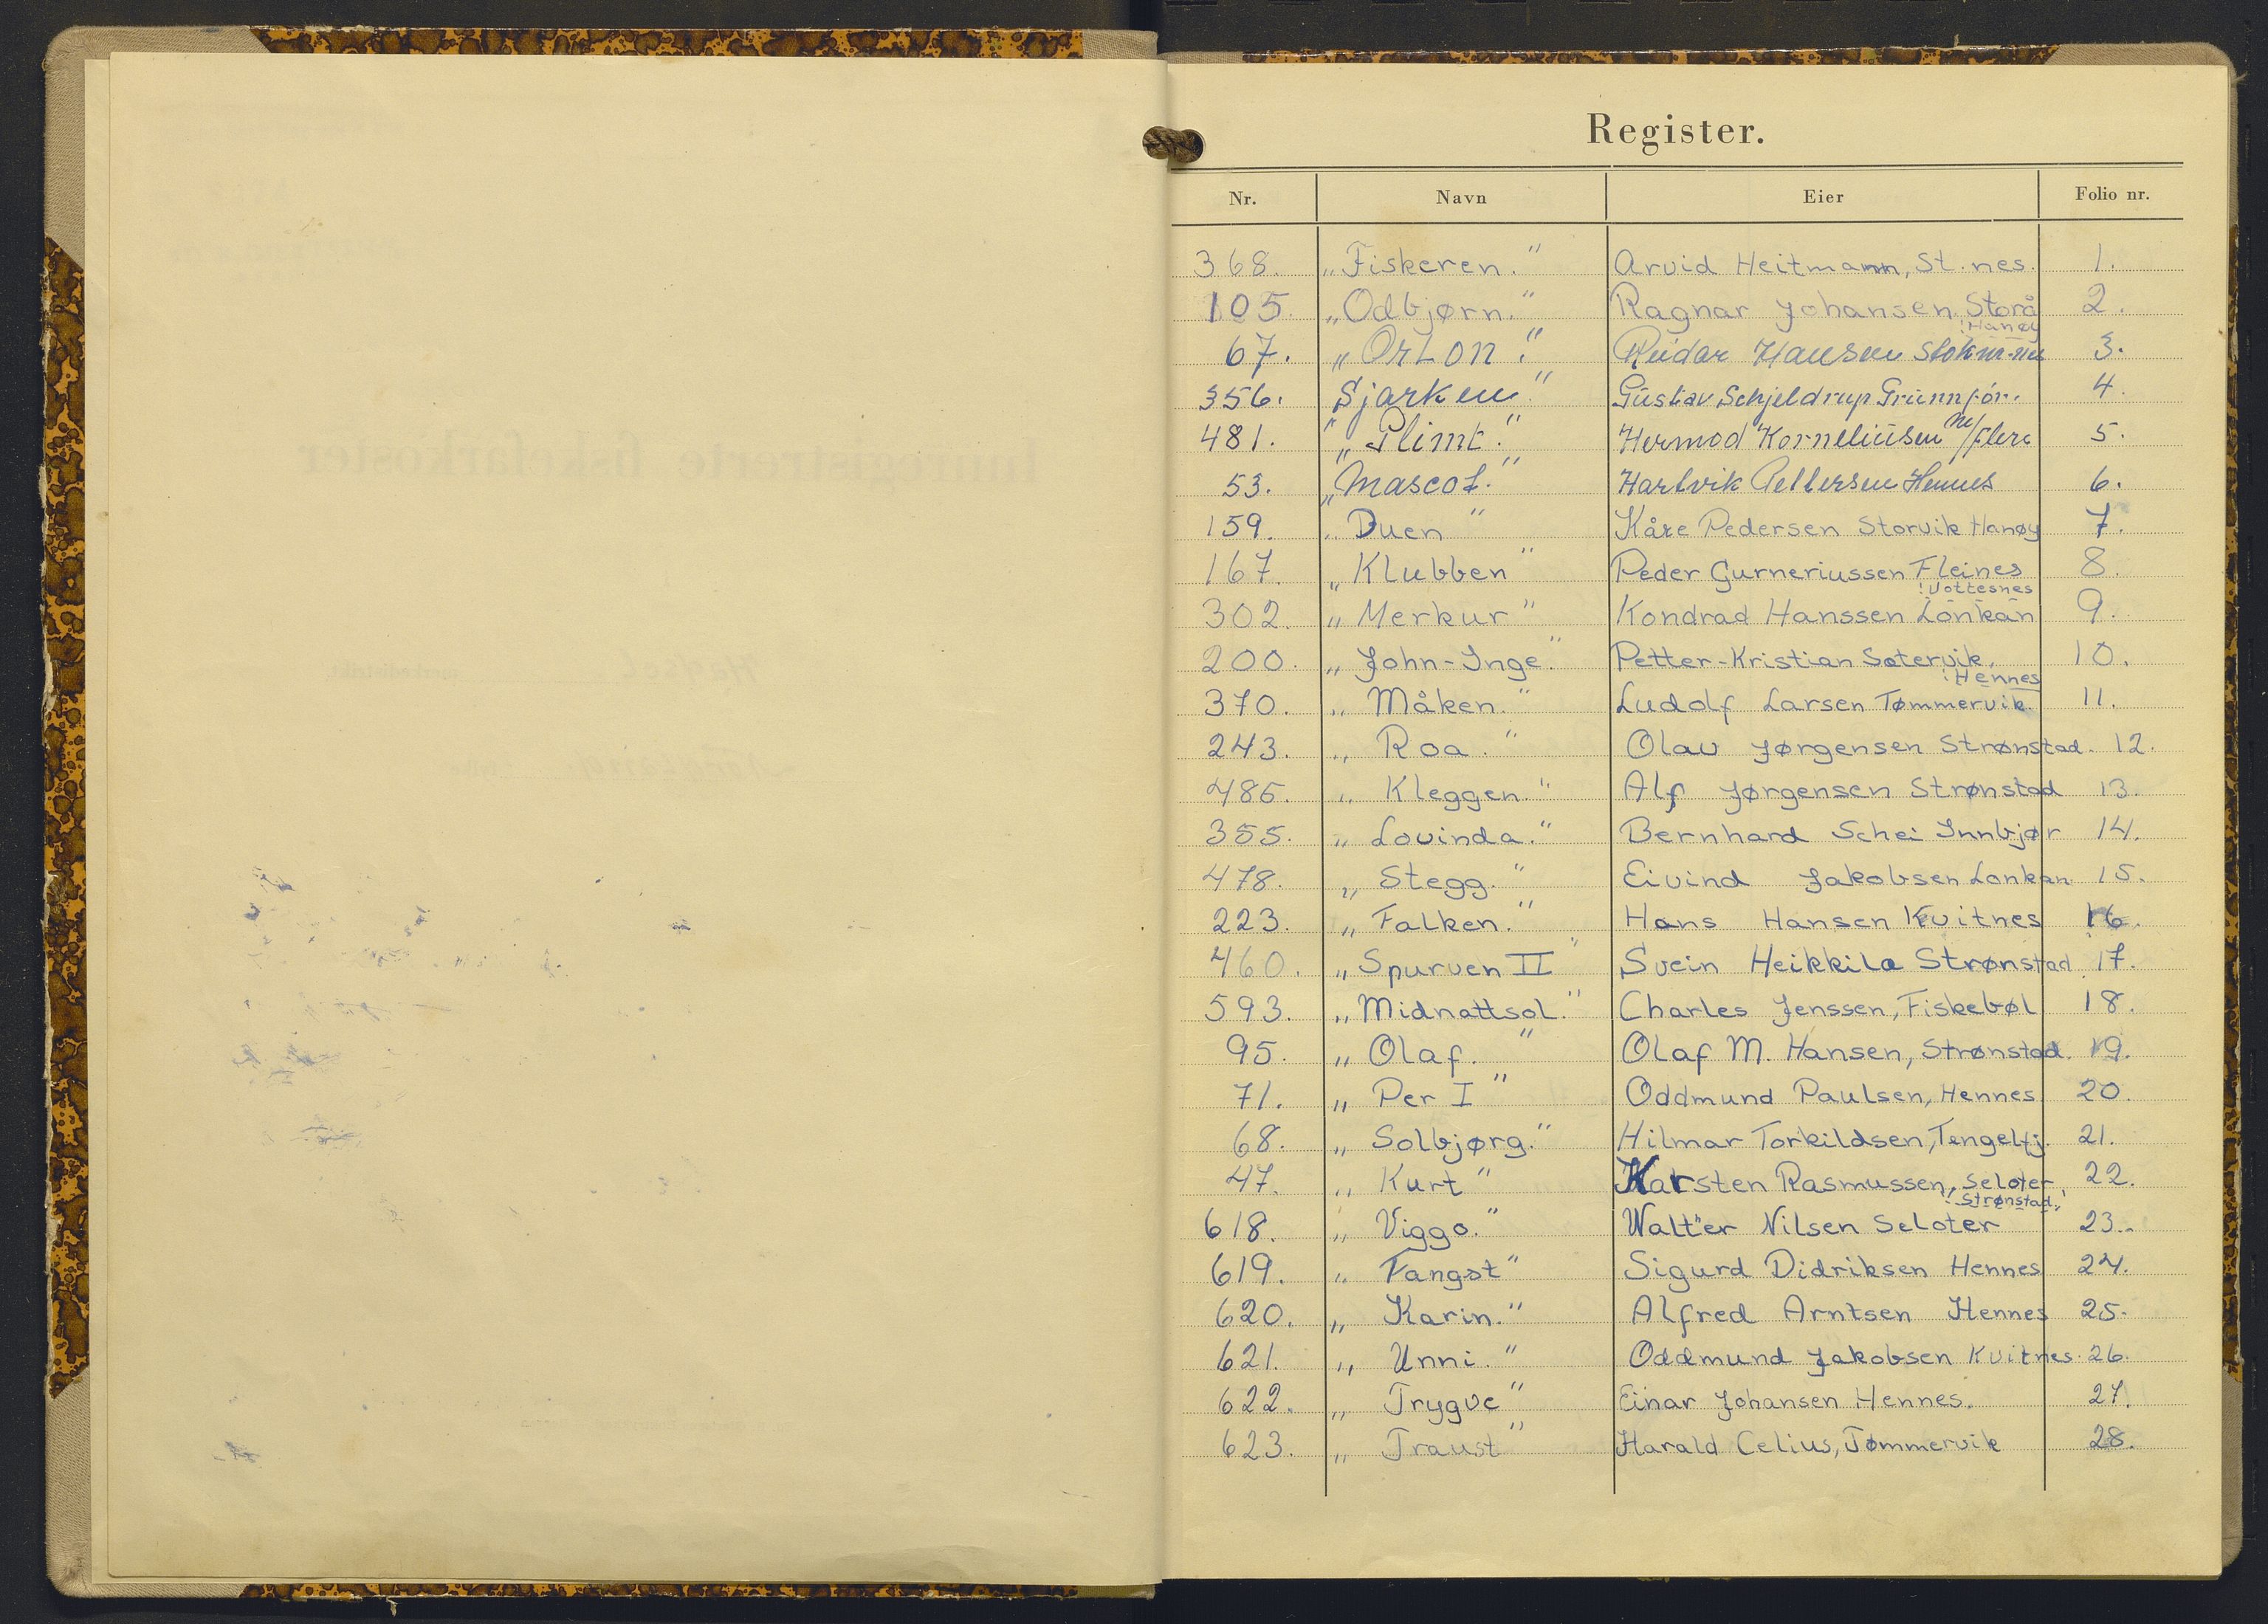 Register.
Nr. Navn Eier Folio nr.
368. „Fiskeren." Arvid Heitmann, St. nes. 1.
105. „Odbjørn." Ragnar Johansen Storå 2.
Hanøy
67. „Orion." Reidar Hansen Stokm.nes 3.
356. Sjarken." Gustav Schjeldrup Grunnfør. 4.
481. „Plimt." Hermod Korneliusen m/flere 5.
53. „Mascot." Hartvik Pettersen Hennes 6.
159. „Duen" Kåre Pedersen Storvik Hanøy 7.
167. „Klubben" Peder Gurneriussen Fleines 8.
Vottesnes
302. „Merkur" Kondrad Hanssen Lonkan 9.
200. „John-Inge." Petter-Kristian Satervik, 10.
Hennes
370. „Måken." Ludolf Larsen Tømmervik. 11.
243. „Roa." Olav Jørgensen Strønstad. 12.
485. „Kleggen." Alf Jørgensen Strønstad 13.
355. „Lovinda." Bernhard Schei Innbjør 14.
478. „Stegg." Eivind Jakobsen Lonkan 15.
223. „Falken." Hans Hansen Kvitnes 16.
460. „Spurven II" Svein Heikkila Strønstad 17.
593. „Midnattsol." Charles Jenssen, Fiskebøl 18.
95. „Olaf." Olaf M. Hansen, Strønstad. 19.
71. „Per I" Oddmund Paulsen, Hennes 20.
68. „Solbjørg." Hilmar Torkildsen, Tengelfj. 21.
47. „Kurt" Karsten Rasmussen, Seloter 22.
Strønstad,
618. „Viggo." Walter Nilsen Seloter 23.
619. „Fangst" Sigurd Didriksen Hennes 24.
620. „Karin." Alfred Arntsen Hennes 25.
621. „Unni." Oddmund Jakobsen Kvitnes. 26.
622. „Trygve" Einar Johansen Hennes. 27.
623. „Traust" Harald Celius, Tømmervik 28.